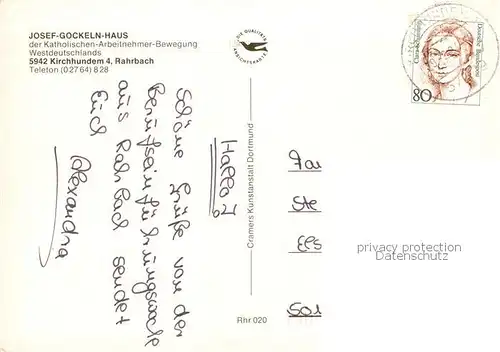 JOSEF-GOCKELN-HAUS
der Katholischen-Arbeitnehmer-Bewegung
Westdeutschlands
5942 Kirchhundem 4, Rahrbach
Telefon (02764) 828
DIE QUALITÄTS
ANSICHTSKARTE
Hallo!
Schöne Grüße von der
Berufseinführungswoche
aus Rahrbach sendet
Euch
Alexandra
Cramers Kunstanstalt Dortmund
Rhr 020
Deutsche Bundespost
80
Fa
Ste
Els
501
privacy protection
Datenschutz